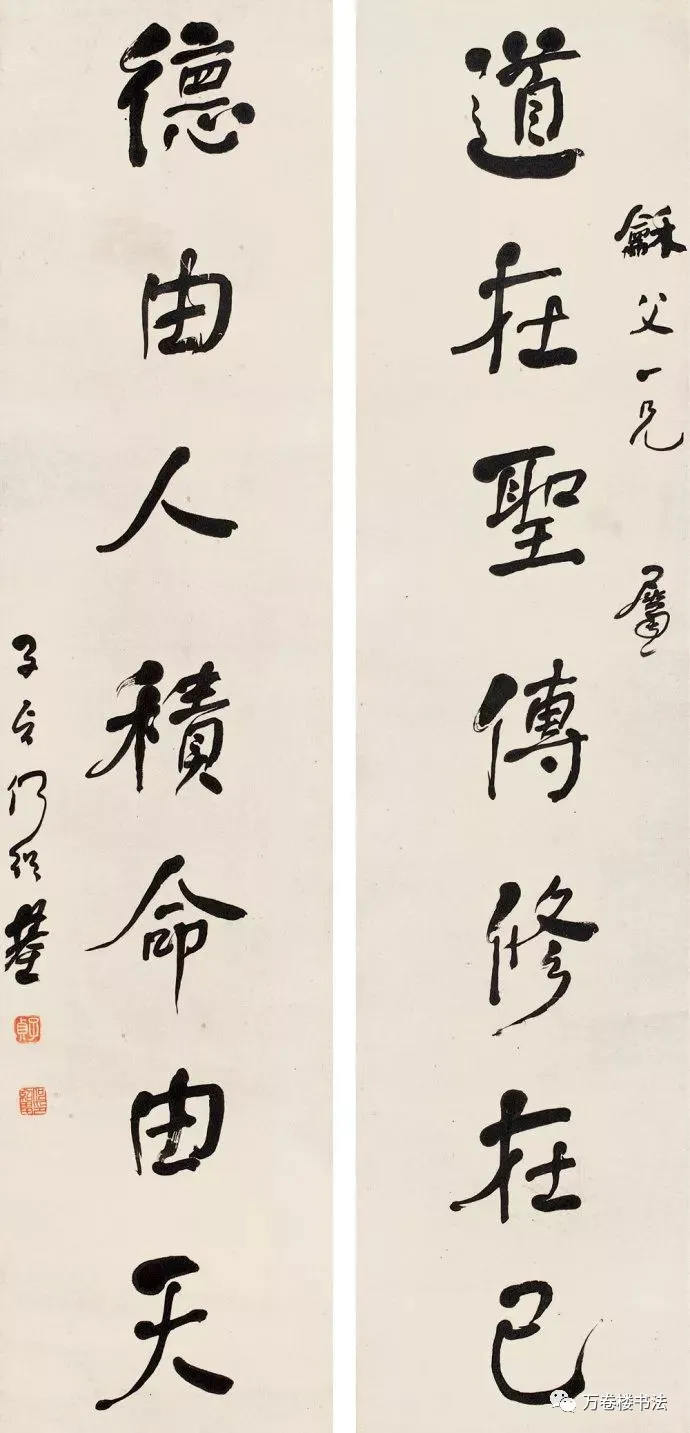 龢父一兄 屬
道在聖傳修在己
德由人積命由天
子貞何紹基
子貞
万卷楼书法